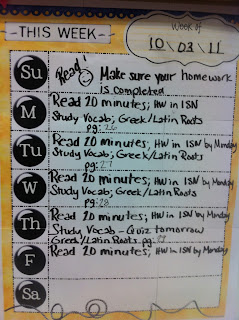 THIS WEEK
Week of
10/03/11
Su
Read! Make sure your homework
is completed
M
Read 20 minutes; HW in ISN
Study Vocab; Greek/Latin Roots
pg. 26
Tu
Read 20 minutes; HW in ISN by Monday
Study Vocab; Greek/Latin Roots
pg. 27
W
Read 20 minutes; HW in ISN by Monday
Study Vocab; Greek/Latin Roots
pg. 28
Th
Read 20 minutes; HW in ISN by Monday
Study Vocab - Quiz tomorrow
Greek/Latin Roots pg.
F
Read 20 minutes; HW in ISN by Monday
Sa